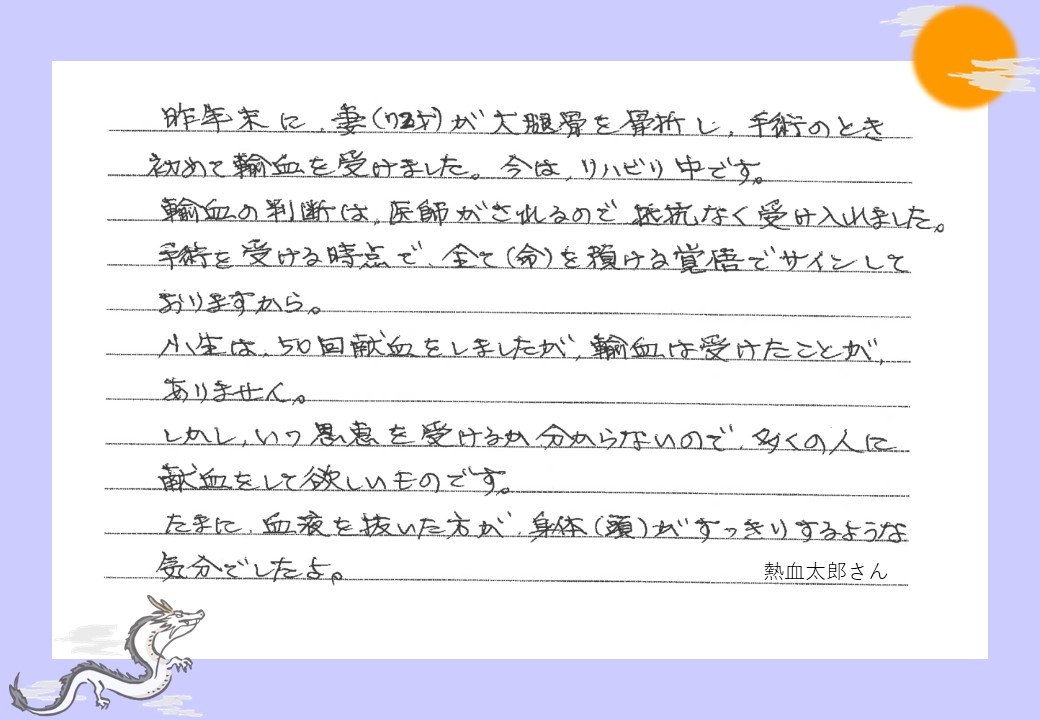 昨年末に、妻(72才)が大腿骨を骨折し、手術のとき
初めて輸血を受けました。今は、リハビリ中です。
輸血の判断は、医師がされるので抵抗なく受け入れました。
手術を受ける時点で、全て(命)を預ける覚悟でサインして
おりますから。
小生は、50回献血をしましたが、輸血は受けたことが、
ありません。
しかし、いつ恩恵を受けるか分からないので、多くの人に
献血をして欲しいものです。
たまに、血液を抜いた方が、身体(頭)がすっきりするような
気分でしたよ。
熱血太郎さん